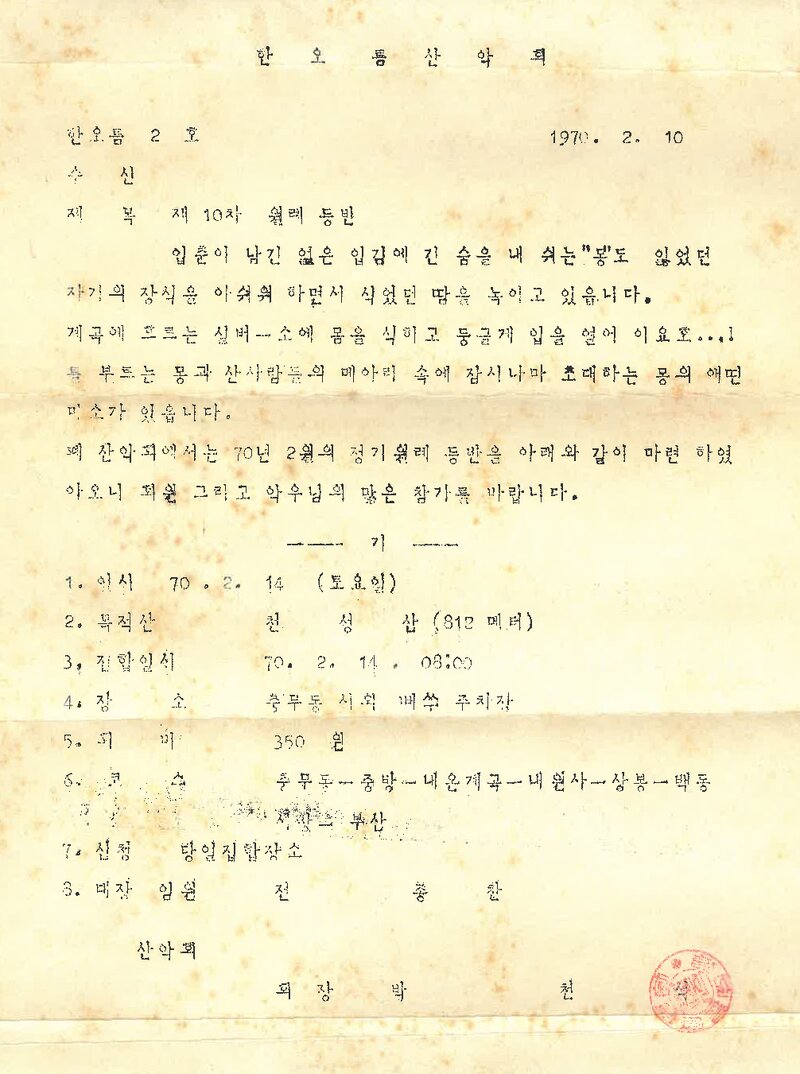 한 오 름 산 악 회
한오름 2 호 1970. 2. 10
수 신
제 목 제 10차 월례 등반
입춘이 남긴 엷은 입김에 긴 숨을 내 쉬는"몽"도 잃었던
자기의 장식을 아쉬워 하면서 식었던 땀을 녹이고 있읍니다.
계곡에 흐르는 실버ㅡ소에 몸을 식히고 둥글게 입을 열어 이요호...!
를 부르는 몽과 산사람들의 메아리 속에 잠시나마 초대하는 몽의 애띤
미소가 있읍니다.
폐 산악회에서는 70년 2월의 정기월례 등반을 아래와 같이 마련 하였
아오니 회원 그리고 악우님의 많은 참가를 바랍니다.
——— 기 ———
1. 일시 70 . 2. 14 (토요일)
2. 목적산 천 성 산 (812 메터)
3. 집합일시 70. 2. 14 . 08:00
4. 장 소 충무동 시외 뻐쓰 주차장
5. 회 비 350 원
6. 코 스 충무동ㅡ중방ㅡ내온계곡ㅡ내원사ㅡ상봉ㅡ백동
부산
7. 신청 당일집합장소
8. 대장 임원 전 종 찬
산악회
회 장 박 천 석